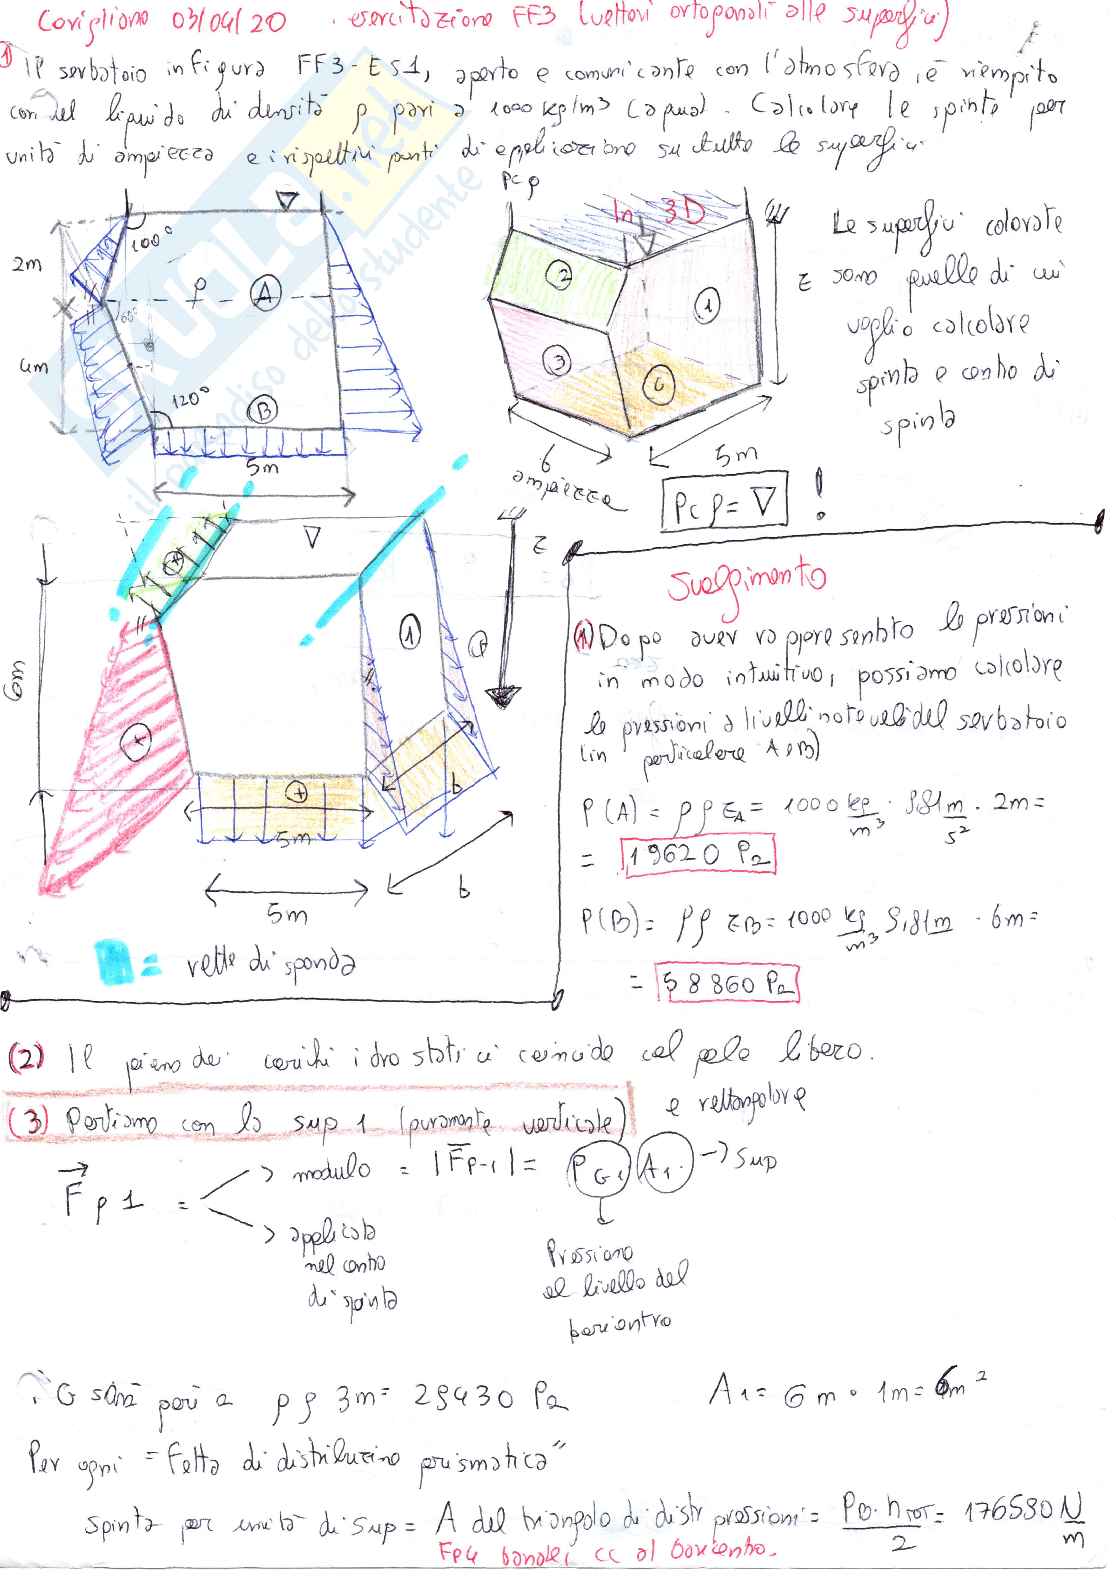 Corigliano 03/04/20 . esercitazione FF3 (vettori ortogonali alle superfici)
1) Il serbatoio in figura FF3-ES1, aperto e comunicante con l'atmosfera, è riempito
con del liquido di densità ρ pari a 1000 kg/m³ (acqua). Calcolare le spinte per
unità di ampiezza e i rispettivi punti di applicazione su tutte le superfici.
2m
4m
100°
60°
120°
ρ
A
B
5m
pcρ
In 3D
z
1
2
3
4
b
ampiezza
5m
pcρ = ∇ !
Le superfici colorate
sono quelle di cui
voglio calcolare
spinta e centro di
spinta
6m
z
1
+
+
+
+
5m
5m
b
b
= rette di sponda
Svolgimento
(1) Dopo aver rappresentato le pressioni
in modo intuitivo, possiamo calcolare
le pressioni a livelli notevoli del serbatoio
(in particolare A e B)
P(A) = ρ g zA = 1000 kg/m³ · 9,81 m/s² · 2m =
= 19620 Pa
P(B) = ρ g zB = 1000 kg/m³ 9,81 m · 6m =
= 58860 Pa
(2) Il piano dei carichi idrostatici coincide col pelo libero.
(3) Partiamo con la sup 1 (puramente verticale) e rettangolare
Fp1 = → modulo = |Fp-1| = PG1 A1. → sup
→ applicata
nel centro
di spinta
Pressione
al livello del
baricentro
G sarà pari a ρ g 3m = 29430 Pa
A1 = 6m · 1m = 6m²
Per ogni "fetta di distribuzione prismatica"
spinta per unità di sup = A del triangolo di distr pressioni = PB · hTOT / 2 = 176580 N/m
Fp4
al baricentro.